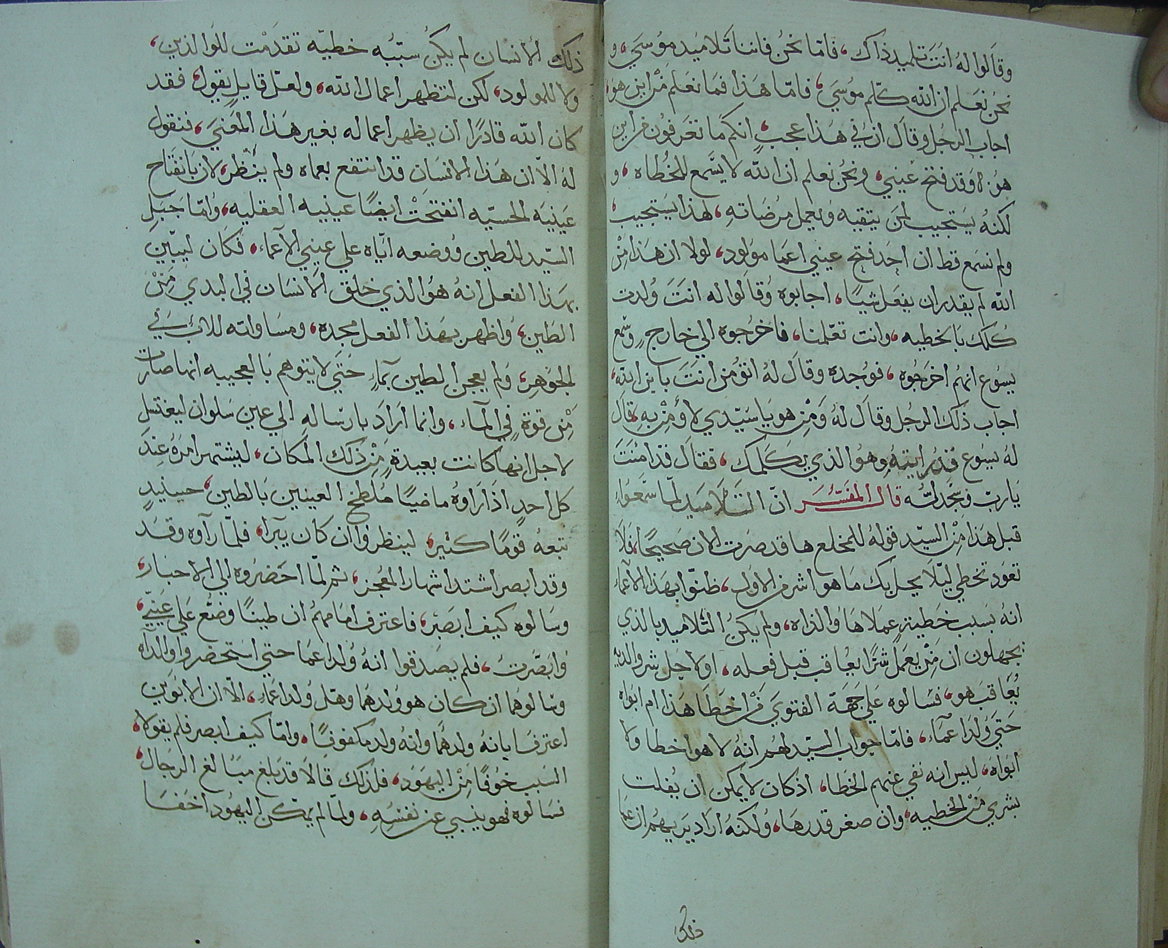 وقالوا له انت تلميد ذاك، فاما نحن فاننا تلاميد موسي، و
نحن نعلم ان الله كلم موسي، فاما هذا فما نعلم من اين هو
اجاب الرجل وقال ان في هذا عجب، انكم ما تعرفون من اين
هو، وقد فتح عيني، ونحن نعلم ان الله لا يسمع للخطاه، و
لكنه يستجيب لمن يتقيه ويعمل مرضاته، هذا يستجيب،
ولم نسمع قط ان احد فتح عيني اعما مولود، لولا ان هذا من
الله لم يقدر ان يفعل شيا، اجابوه وقالوا له انت ولدت
كلك بالخطيه، وانت تعلمنا، فاخرجوه الي خارج، وسمع
يسوع انهم اخرجوه، فوجده وقال له اتومن انت بابن الله،
اجاب ذلك الرجل وقال له ومن هو يا سيدي لاومن به، قال
له يسوع قد رايته وهو الذي يكلمك، فقال قد امنت
يا رب وسجد له، قال المفسر ان التلاميد لما سمعوا،
قبل هذا من السيد قوله للمخلع ها قد صرت الان صحيحا، فلا
تعود تخطي ليلا يحل بك ما هو اشر من الاول، ظنوا بهذا الاعما،
انه بسبب خطيته عملاها والداه، ولم يكن التلاميد بالذي
يجهلون ان من يعمل شرا يعاقب قبل فعله، او لاجل شر والديه
يعاقب هو، فسالوه علي جهة الفتوي من اخطا هذا ام ابواه
حتي ولد اعماء، فاما جواب السيد لهم انه لا هو اخطا ولا
ابواه، ليس انه نفي عنهم الخطا، اذ كان لا يمكن ان يفلت
بشري من الخطيه، وان صغر قدرها، ولكنه اراد يريهم ان عما
ذلك
ذلك الانسان لم يكن سببه خطيه تقدمت للوالدين،
ولا للمولود، لكن لتظهر اعمال الله، ولعل قايل يقول، فقد
كان الله قادرا ان يظهر اعماله بغير هذا المعني، فنقول
له الا ان هذا الانسان قد انتفع بعماه ولم ينظر، لان بانفتاح
عينيه الحسيه انفتحت ايضا عينيه العقليه، واما جبل
السيد للطين ووضعه اياه علي عيني الاعماء، فكان ليبين
بهذا الفعل انه هو الذي خلق الانسان في البدي من
الطين، واظهر بهذا الفعل مجده، ومساواته للاب في
الجوهر، ولم يعجن الطين بماء، حتي لا يتوهم بالعجيبه انها صارت
من قوة في الماء، وانما اراد بارساله الي عين سلوان ليغتسل
لاجل انها كانت بعيدة من ذلك المكان، ليشتهر امره عند
كل احد اذا راوه ماضيا ملطخ العينين بالطين، حينيد
تبعه قوما كثير، لينظروا ان كان يبرا، فلما راوه وقد
وقد ابصر اشتد اشهار المعجز، ثم لما احضروه الي الاحبار،
وسالوه كيف ابصر، فاعترف امامهم ان طينا وضع علي عيني
وابصرت، فلم يصدقوا انه ولد اعما حتي استحضروا والداه
وسالوهما ان كان هو ولدهما وهل ولد اعماء، الا ان الابوين
اعترفا بانه ولدهما وانه ولد مكفوفا، واما كيف ابصر فلم يقولا،
السبب خوفا من اليهود، فلذلك قالا قد بلغ مبالغ الرجال،
فسالوه فهو ينبي عن نفسه، ولما لم يمكن اليهود اخفا